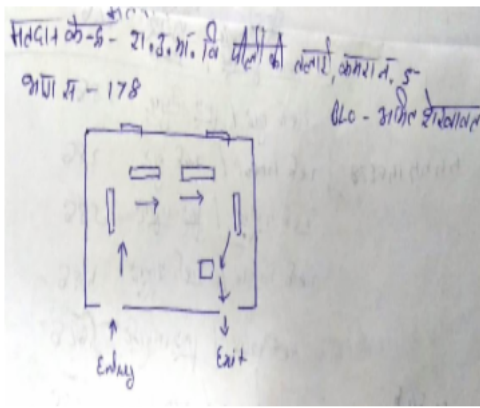 मतदान केन्द्र - रा.उ.मा.वि पीलीं की तलाई, कमरा नं. 5
भाग सं - 178
BLO - अमित शेखावत
Entry
Exit